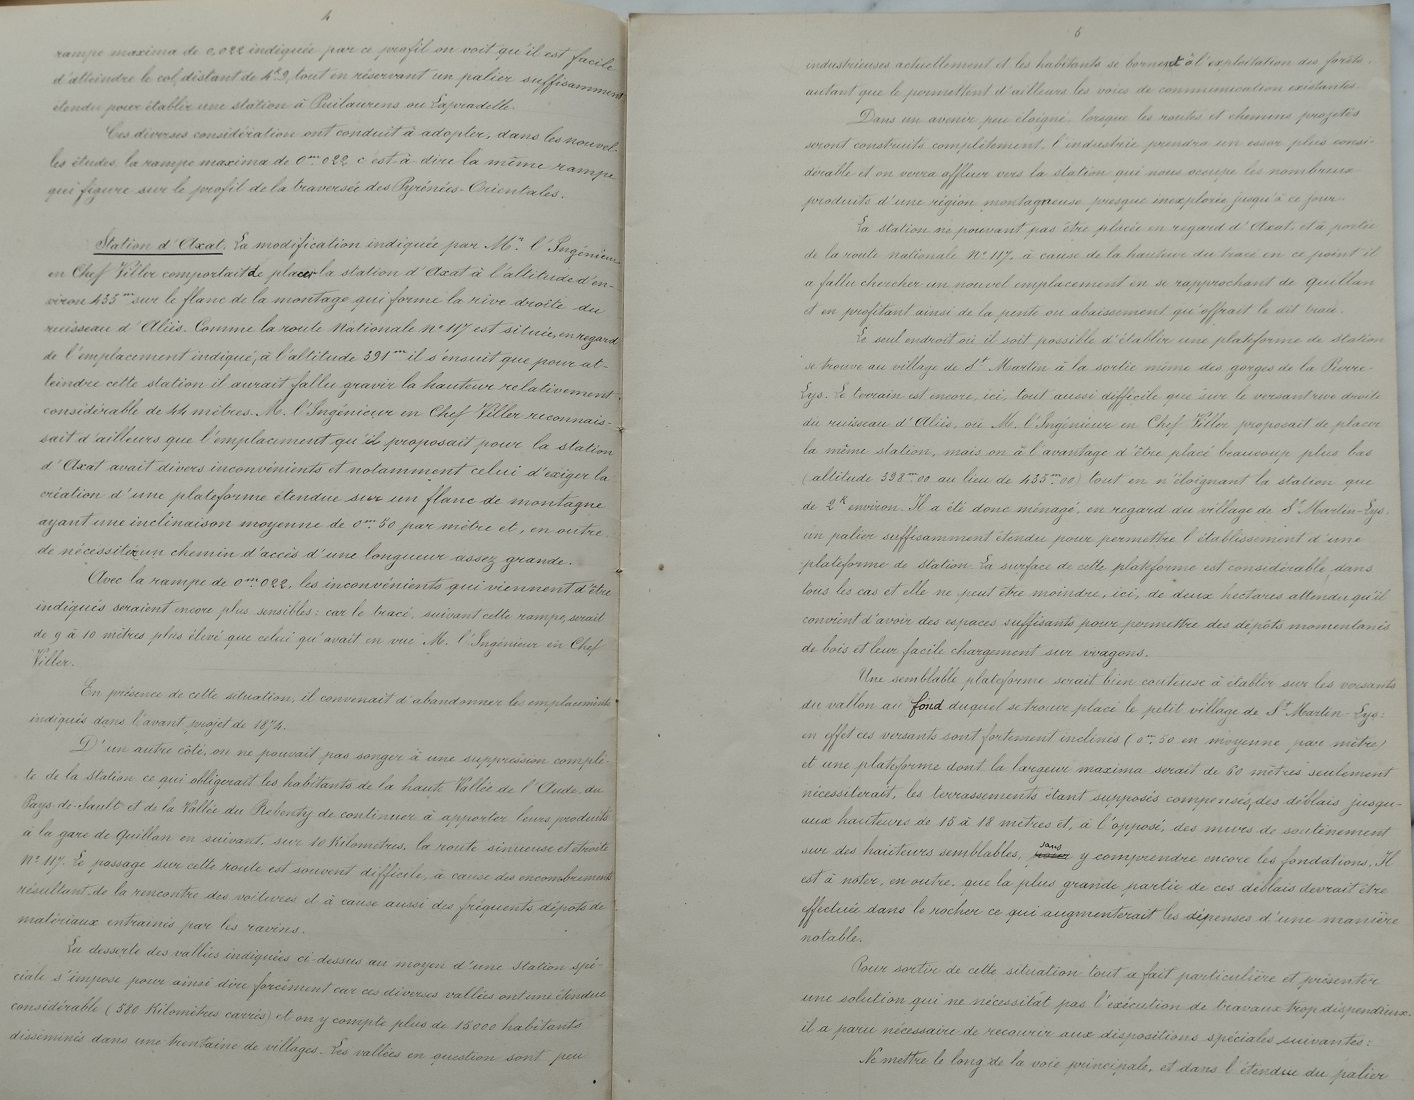 4
rampe maxima de 0,022 indiquée par ce profil on voit qu'il est facile
d'atteindre le col, distant de 4K9, tout en réservant un palier suffisamment
étendu pour établir une station à Puilaurens ou Lapradelle.
Ces diverses considération ont conduit à adopter, dans les nouvel-
les études, la rampe maxima de 0m.022 c'est-à-dire la même rampe
qui figure sur le profil de la traversée des Pyrénées-Orientales.
Station d'Axat. La modification indiquée par Mr. l'Ingénieur
en Chef Viller comportait de placer la station d'Axat à l'altitude d'en-
viron 435m sur le flanc de la montage qui forme la rive droite du
ruisseau d'Aliès. Comme la route Nationale No 117 est située, en regard
de l'emplacement indiqué, à l'altitude 391m il s'ensuit que pour at-
teindre cette station il aurait fallu gravir la hauteur relativement
considérable de 44 mètres. M. l'Ingénieur en Chef Viller reconnais-
sait d'ailleurs que l'emplacement qu'il proposait pour la station
d'Axat avait divers inconvénients et notamment celui d'exiger la
création d'une plateforme étendue sur un flanc de montagne
ayant une inclinaison moyenne de 0m.50 par mètre et, en outre
de nécessiter un chemin d'accès d'une longueur assez grande.
Avec la rampe de 0m.022, les inconvénients qui viennent d'être
indiqués seraient encore plus sensibles: car le tracé, suivant cette rampe, serait
de 9 à 10 mètres plus élevé que celui qu'avait en vue M. l'Ingénieur en Chef
Viller.
En présence de cette situation, il convenait d'abandonner les emplacements
indiqués dans l'avant projet de 1874.
D'un autre côté, on ne pouvait pas songer à une suppression complè-
te de la station ce qui obligerait les habitants de la haute Vallée de l'Aude, du
Pays de Sault et de la Vallée du Rebenty de continuer à apporter leurs produits
à la gare de Quillan en suivant, sur 10 Kilomètres, la route sinueuse et étroite
No 117. Le passage sur cette route est souvent difficile, à cause des encombrements
résultant de la rencontre des voitures et à cause aussi des fréquents dépots de
matériaux entrainés par les ravins.
La desserte des vallées indiquées ci-dessus au moyen d'une station spé-
ciale s'impose pour ainsi dire forcément car ces diverses vallées ont une étendue
considérable (580 Kilomètres carrés) et on y compte plus de 15000 habitants
disséminés dans une trentaine de villages. Les vallées en question sont peu
5
industrieuses actuellement et les habitants se bornent à l'exploitation des forêts,
autant que le permettent d'ailleurs les voies de communication existantes.
Dans un avenir peu éloigné lorsque les routes et chemins projetés
seront construits complètement, l'industrie prendra un essor plus consi-
dérable et on verra affluer vers la station qui nous occupe les nombreux
produits d'une région montagneuse presque inexplorée jusqu'à ce jour.
La station ne pouvant pas être placée en regard d'Axat, et à portée
de la route nationale No 117, à cause de la hauteur du tracé en ce point il
a fallu chercher un nouvel emplacement en se rapprochant de Quillan
et en profitant ainsi de la pente ou abaissement qu'offrait le dit tracé.
Le seul endroit où il soit possible d'établir une plateforme de station
se trouve au village de St Martin à la sortie même des gorges de la Pierre-
Lys. Le terrain est encore, ici, tout aussi difficile que sur le versant rive droite
du ruisseau d'Aliès, où M. l'Ingénieur en Chef Viller proposait de placer
la même station, mais on à l'avantage d'être placé beaucoup plus bas
(altitude 398m.00 au lieu de 435m.00) tout en n'éloignant la station que
de 2K environ. Il a été donc ménagé, en regard du village de St Martin-Lys,
un palier suffisamment étendu pour permettre l'établissement d'une
plateforme de station. La surface de cette plateforme est considérable dans
tous les cas et elle ne peut être moindre, ici, de deux hectares attendu qu'il
convient d'avoir des espaces suffisants pour permettre des dépôts momentanés
de bois et leur facile chargement sur wagons.
Une semblable plateforme serait bien couteuse à établir sur les versants
du vallon au fond duquel se trouve placé le petit village de St Martin-Lys:
en effet ces versants sont fortement inclinés (0m.50 en moyenne par mètre)
et une plateforme dont la largeur maxima serait de 60 mètres seulement
nécessiterait, les terrassements étant supposés compensés, des déblais jusqu'-
aux hauteurs de 15 à 18 mètres et, à l'opposé, des murs de soutènement
sur des hauteurs semblables, sans y comprendre encore les fondations. Il
est à noter, en outre, que la plus grande partie de ces déblais devrait être
effectuée dans le rocher ce qui augmenterait les dépenses d'une manière
notable.
Pour sortir de cette situation tout a fait particulière et présenter
une solution qui ne nécessitât pas l'exécution de travaux trop dispendieux.
il a paru nécessaire de recourir aux dispositions spéciales suivantes:
Ne mettre le long de la voie principale, et dans l'étendue du palier